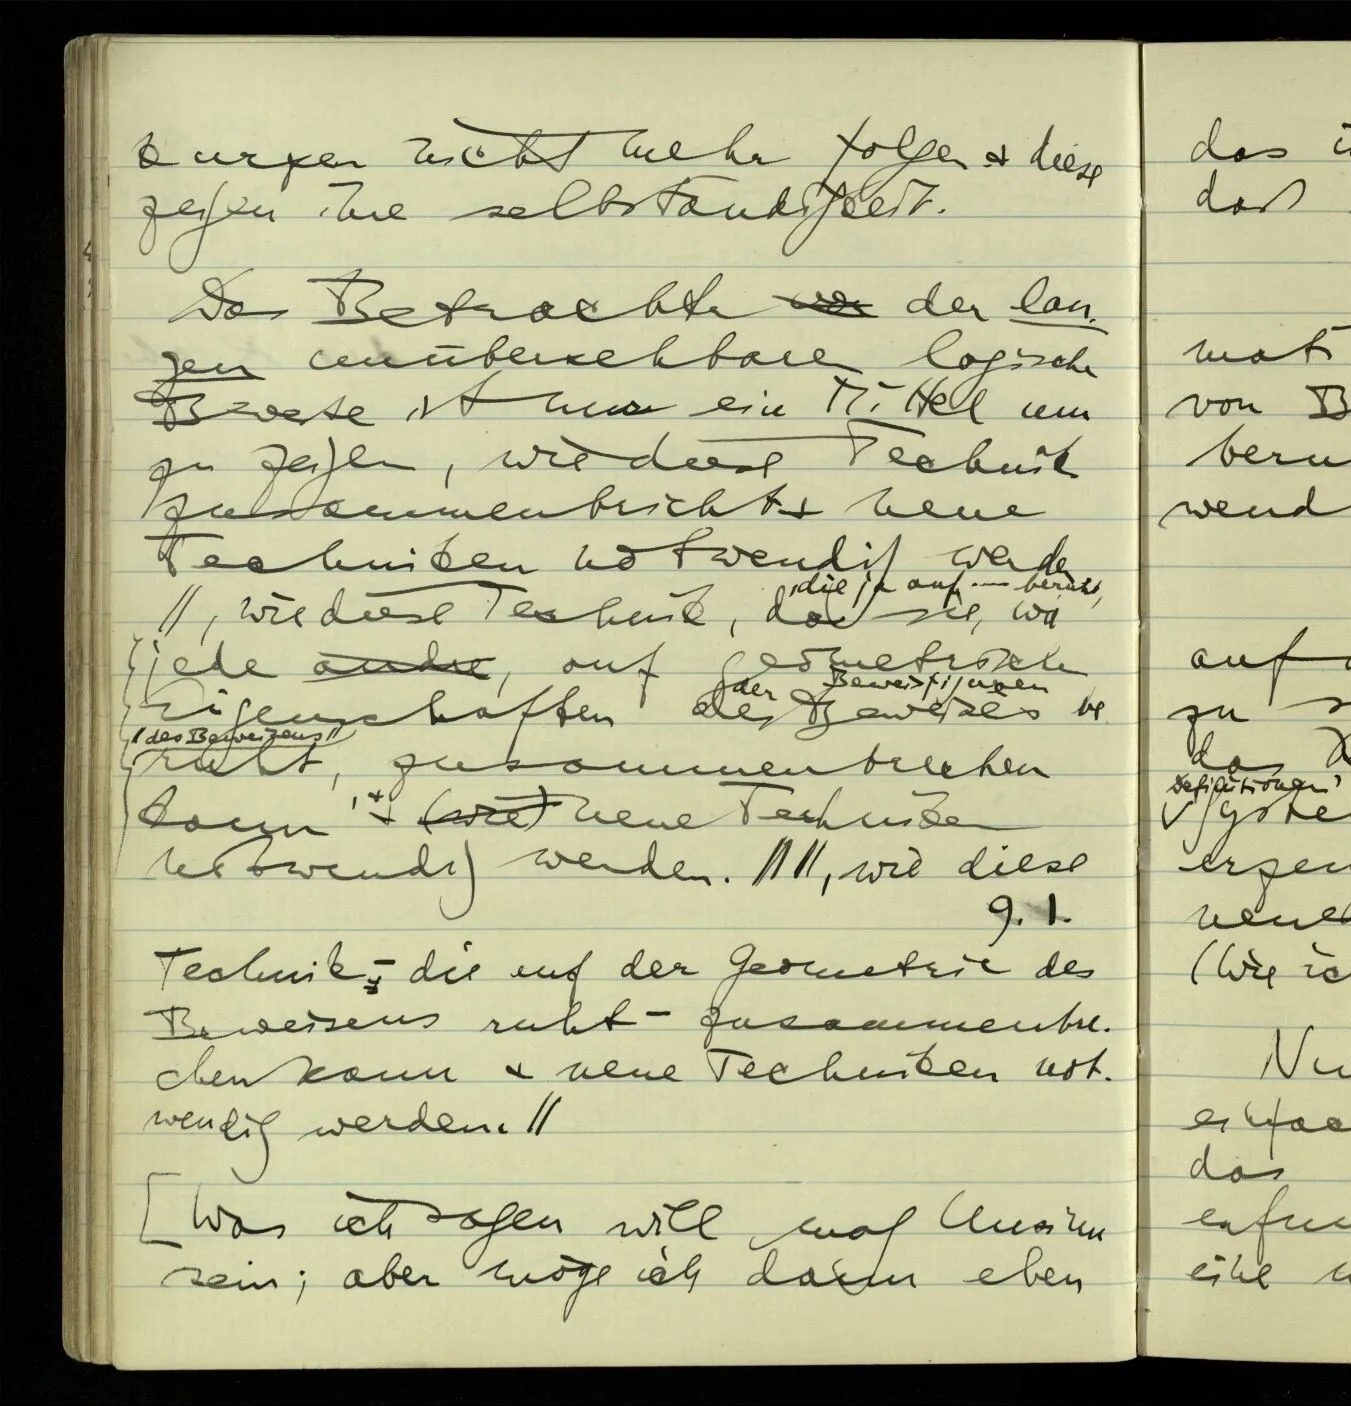 kurzen nicht mehr folgen & diese
zeigen ihre selbständigkeit.
Das Betrachten von der lan-
gen unübersehbaren logischen
Beweise ist nur ein Mittel um
zu zeigen, wie diese Technik
zusammenbricht & neue
Techniken notwendig werden
, die ja auf --- beruht,
//, wie diese Technik, daß sie, wie
jede andre, auf geometrischen
der Beweisfiguren
Eigenschaften des Beweises be
"des Beweisens"
ruht, zusammenbrechen
kann, & (wie) neue Techniken
notwendig werden. // //, wie diese
9. 1.
Technik – die auf der Geometrie des
Beweisens ruht – zusammenbre-
chen kann & neue Techniken not-
wendig werden. //
[Was ich sagen will mag Unsinn
sein; aber möge ich darin eben
das
daß
mat
von B
auf
zu
das
Definitionen'
(Wie ic
Nu
das